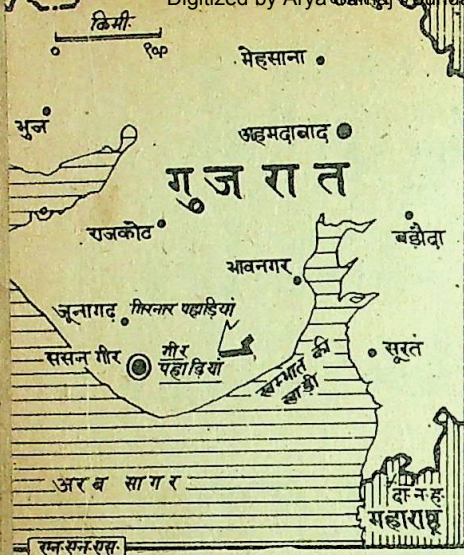 Digitized by Arya
कि.मी.
० १००
मेहसाना
भुज
अहमदाबाद
गुजरात
राजकोट
बड़ौदा
भावनगर
जूनागढ़ गिरनार पहाड़ियां
ससन गीर
गीर
पहाड़ियां
खम्भात की
खाड़ी
सूरत
अरब सागर
दा.न.ह.
महाराष्ट्र
एन.एन.एस.